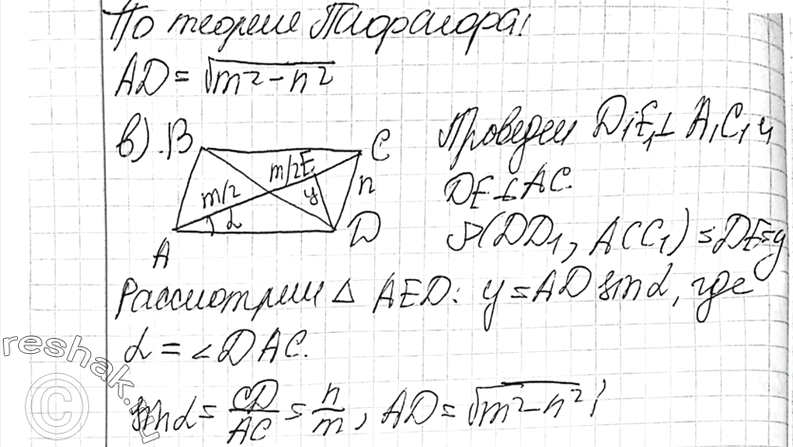 По теореме Пифагора:
AD = √(m² - n²)
в).
B
C
m/2
m/2
E
y
n
α
A
D
Проведем D₁E₁⊥A₁C₁ и
DE⊥AC.
ρ(DD₁, ACC₁) = DE = y
Рассмотрим △ AED: y = AD sinα, где
α = ∠DAC.
sinα = CD/AC = n/m, AD = √(m² - n²);
reshak.ru
©